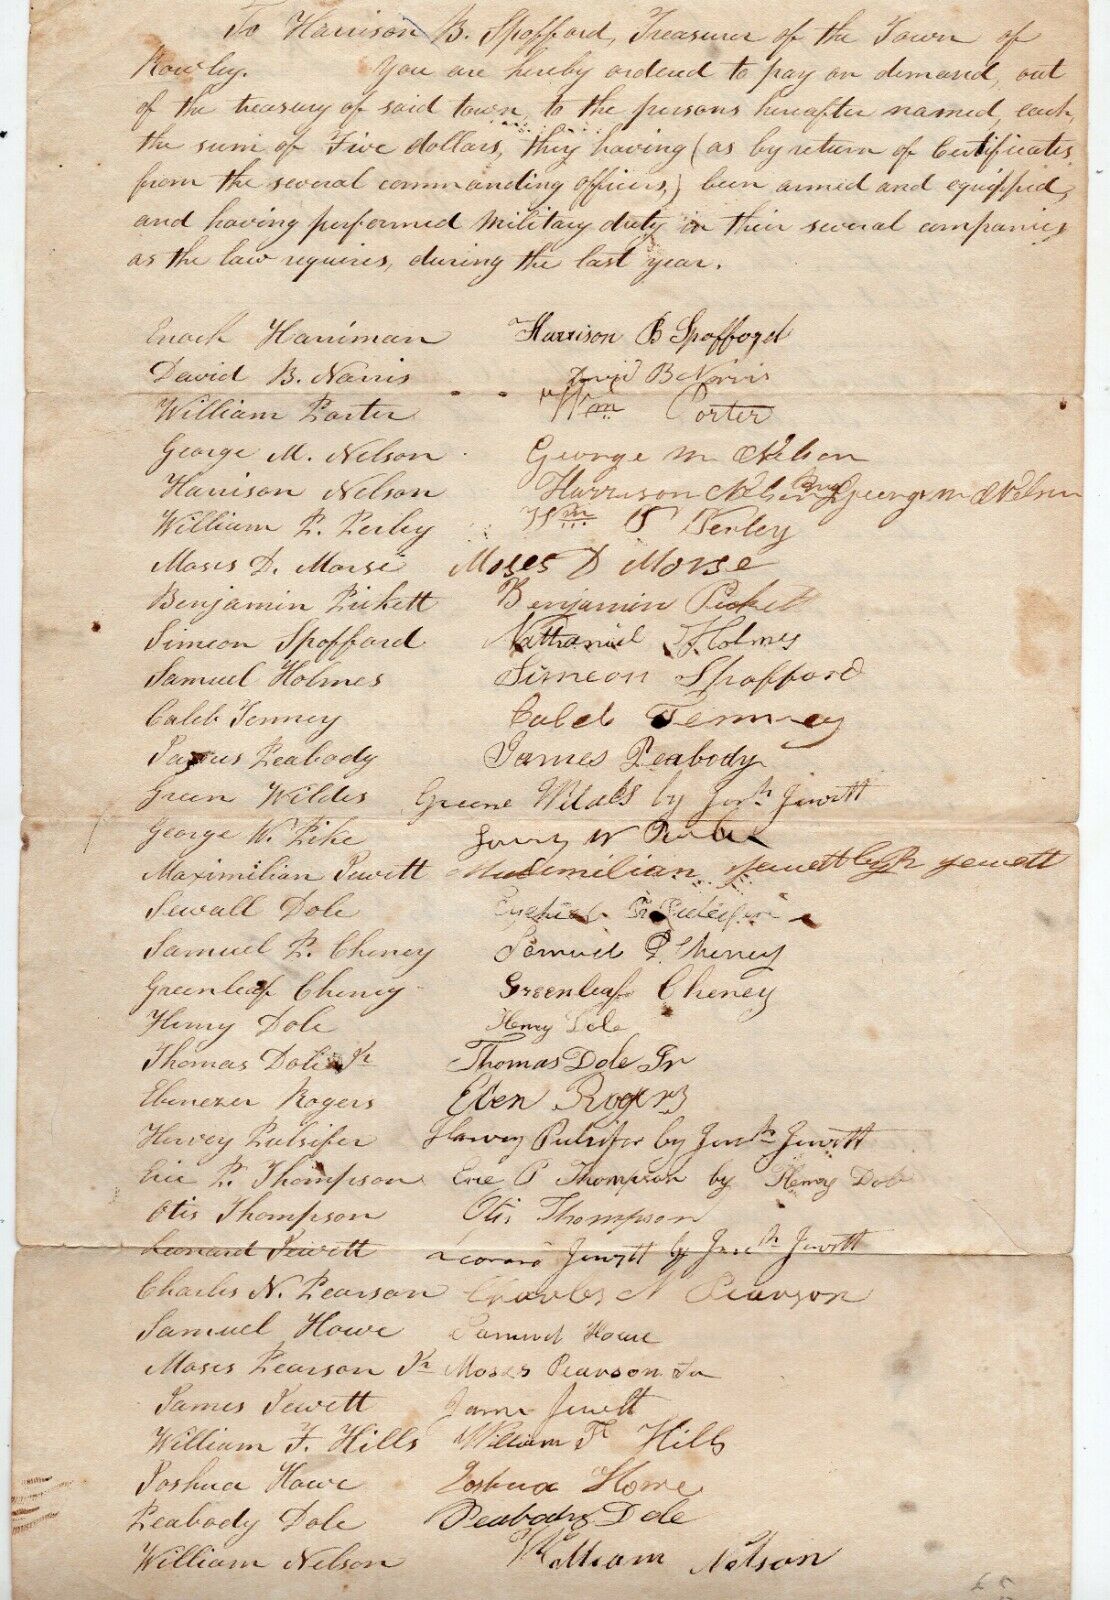 To Harrison B. Spofford, Treasurer of the Town of
Rowley. You are hereby ordered to pay on demand, out
of the treasury of said town, to the persons hereafter named, each,
the sum of Five dollars, they having (as by return of Certificates
from the several commanding officers,) been armed and equipped,
and having performed military duty in their several companies,
as the law requires, during the last year.
Enoch Harriman Harrison B Spofford
David B. Norris David B Norris
William Porter Wm Porter
George M. Nelson George M Nelson
Harrison Nelson Harrison Nelson By George M Nelson
William P. Perley Wm P Perley
Moses D. Morse Moses D Morse
Benjamin Pickett Benjamin Pickett
Simeon Spofford Nathaniel Holmes
Samuel Holmes Simeon Spofford
Caleb Tenney Caleb Tenney
James Peabody James Peabody
Green Wildes Greene Wilds by Josh Jewett
George W. Pike George W
Maximilian Jewett Maximilian Jewett by Jr Jewett
Sewall Dole
Samuel P. Cheney Samuel P. Cheney
Greenleaf Cheney Greenleaf Cheney
Henry Dole Henry Dole
Thomas Dole Jr Thomas Dole Jr
Ebenezer Rogers Eben Rogers
Hervey Pulsifer Harvey Pulsifer by Josh Jewett
Eric P. Thompson Eric P Thompson by Henry Dole
Otis Thompson Otis Thompson
Leonard Jewett Leonard Jewett by Joseph Jewett
Charles N. Pearson Charles N Pearson
Samuel Howe Samuel Howe
Moses Pearson Jr Moses Pearson Jr
James Jewett James Jewett
William F. Hills William F Hills
Joshua Howe Joshua Howe
Peabody Dole Peabody Dole
William Nelson William Nelson